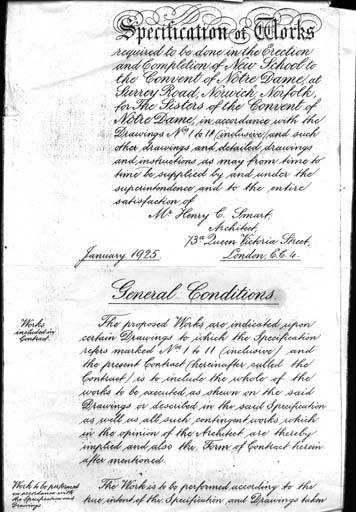 Specification of Works
required to be done in the Erection
and Completion of New School to
the Convent of Nôtre Dame, at
Surrey Road, Norwich, Norfolk,
for The Sisters of the Convent of
Nôtre Dame, in accordance with the
Drawings Nos 1 to 11 (inclusive) and such
other drawings and detailed drawings
and instructions as may from time to
time be supplied by and under the
superintendence and to the entire
satisfaction of
Mr Henry C. Smart,
Architect,
73a Queen Victoria Street,
January 1925. London, E.C. 4.
General Conditions.
Works
included in
Contract.
The proposed Works are indicated upon
certain Drawings to which the Specification
refers marked Nos 1 to 11 (inclusive) and
the present Contract (hereinafter called the
Contract) is to include the whole of the
works to be executed as shewn on the said
Drawings or described in the said Specification
as well as all such contingent works which
in the opinion of the Architect are thereby
implied and also the Form of Contract herein
after mentioned.
Work to be performed
in accordance with
the Specification and
Drawings
The Work is to be performed according to the
true intent of the Specification and Drawings taken